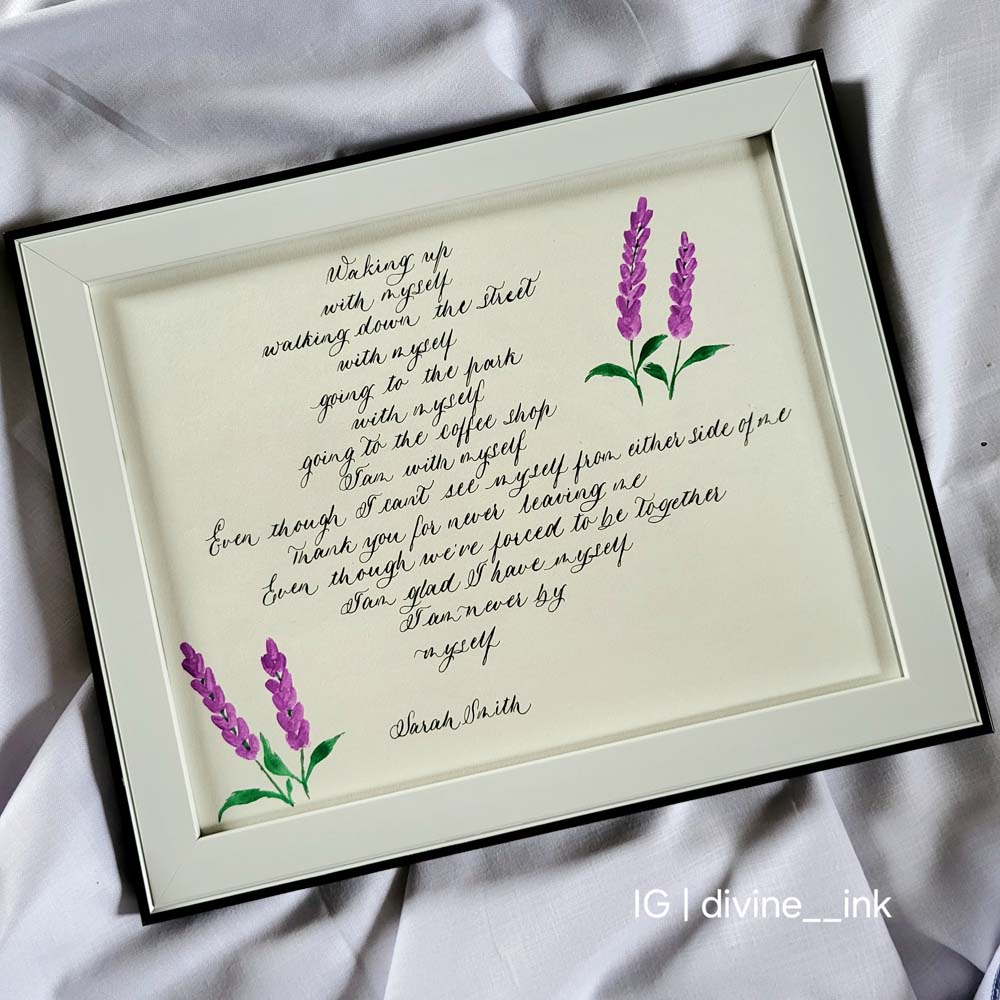 Waking up
with myself
walking down the street
with myself
going to the park
with myself
going to the coffee shop
I am with myself
Even though I can't see myself from either side of me
Thank you for never leaving me
Even though we're forced to be together
I am glad I have myself
I am never by
myself
Sarah Smith
IG | divine__ink